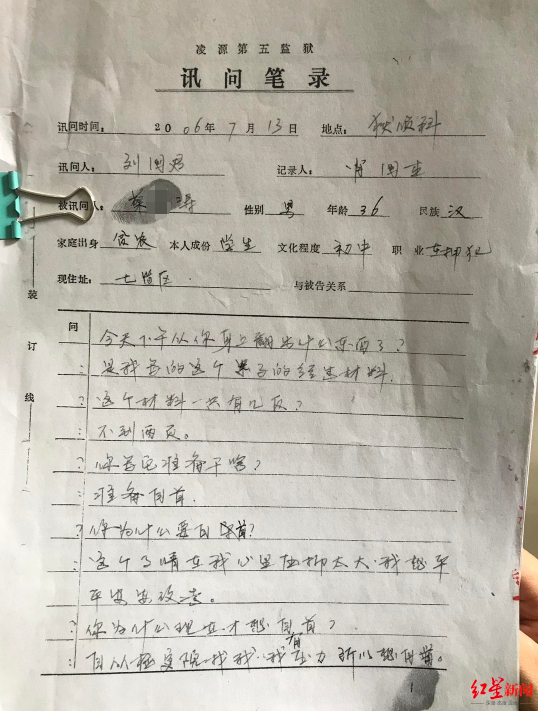 凌源第五监狱
讯问笔录
讯问时间： 2006年7月13日 地点：狱侦科
讯问人： 刘国君 记录人： 国
被讯问人： 性别 男 年龄 36 民族 汉
家庭出身 贫农 本人成份 学生 文化程度 初中 职业 在押犯
现住址： 七监区 与被告关系
装
订
线
问 今天下午从你身上翻出什么东西了？
是我写的这个案子的经过材料.
？ 这个材料一共有几页？
： 不到两页。
？ 你写它准备干啥？
： 准备自首.
？ 你为什么要自首？
： 这个事情在我心里压抑太大，我想平
平安安改造。
？ 你为什么现在才想自首？
： 自从检察院一找我，我有压力所以想自首。
1
红星新闻